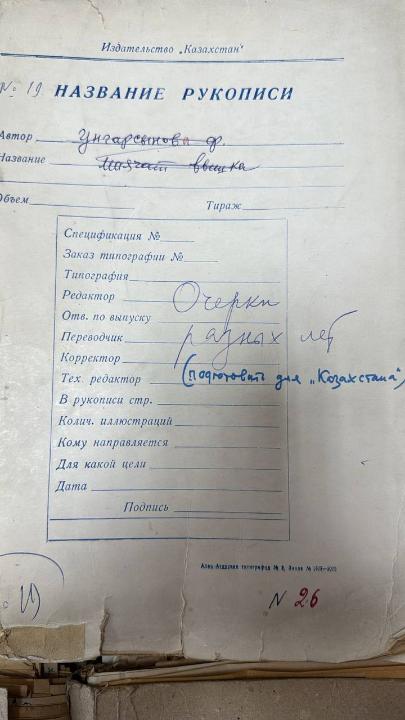 Издательство „Казахстан“
№ 19 НАЗВАНИЕ РУКОПИСИ
Автор Унгарсынова Ф.
Название Маячат вышка
Объем Тираж
Спецификация №
Заказ типографии №
Типография
Редактор
Очерки
Отв. по выпуску
Переводчик
разных лет
Корректор
Тех. редактор (подготовить для „Казахстана“)
В рукописи стр.
Колич. иллюстраций
Кому направляется
Для какой цели
Дата
Подпись
типография № Заказ №
N 26